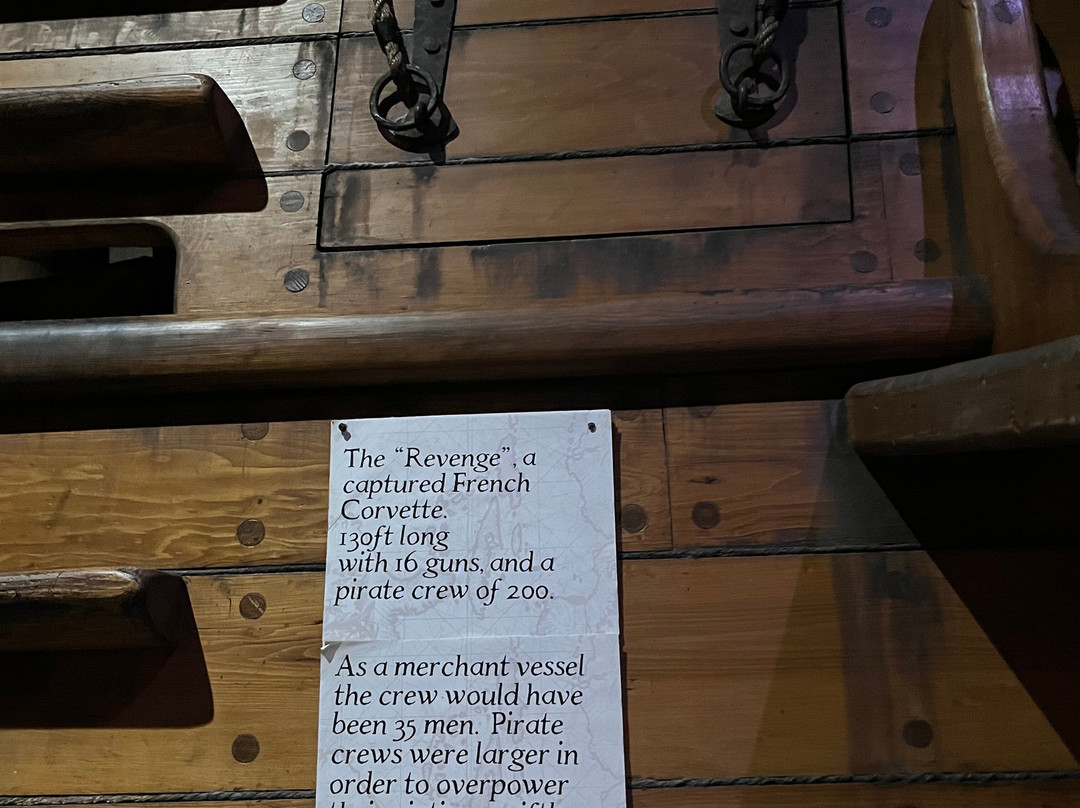 The “Revenge”, a
captured French
Corvette.
130ft long
with 16 guns, and a
pirate crew of 200.
As a merchant vessel
the crew would have
been 35 men. Pirate
crews were larger in
order to overpower